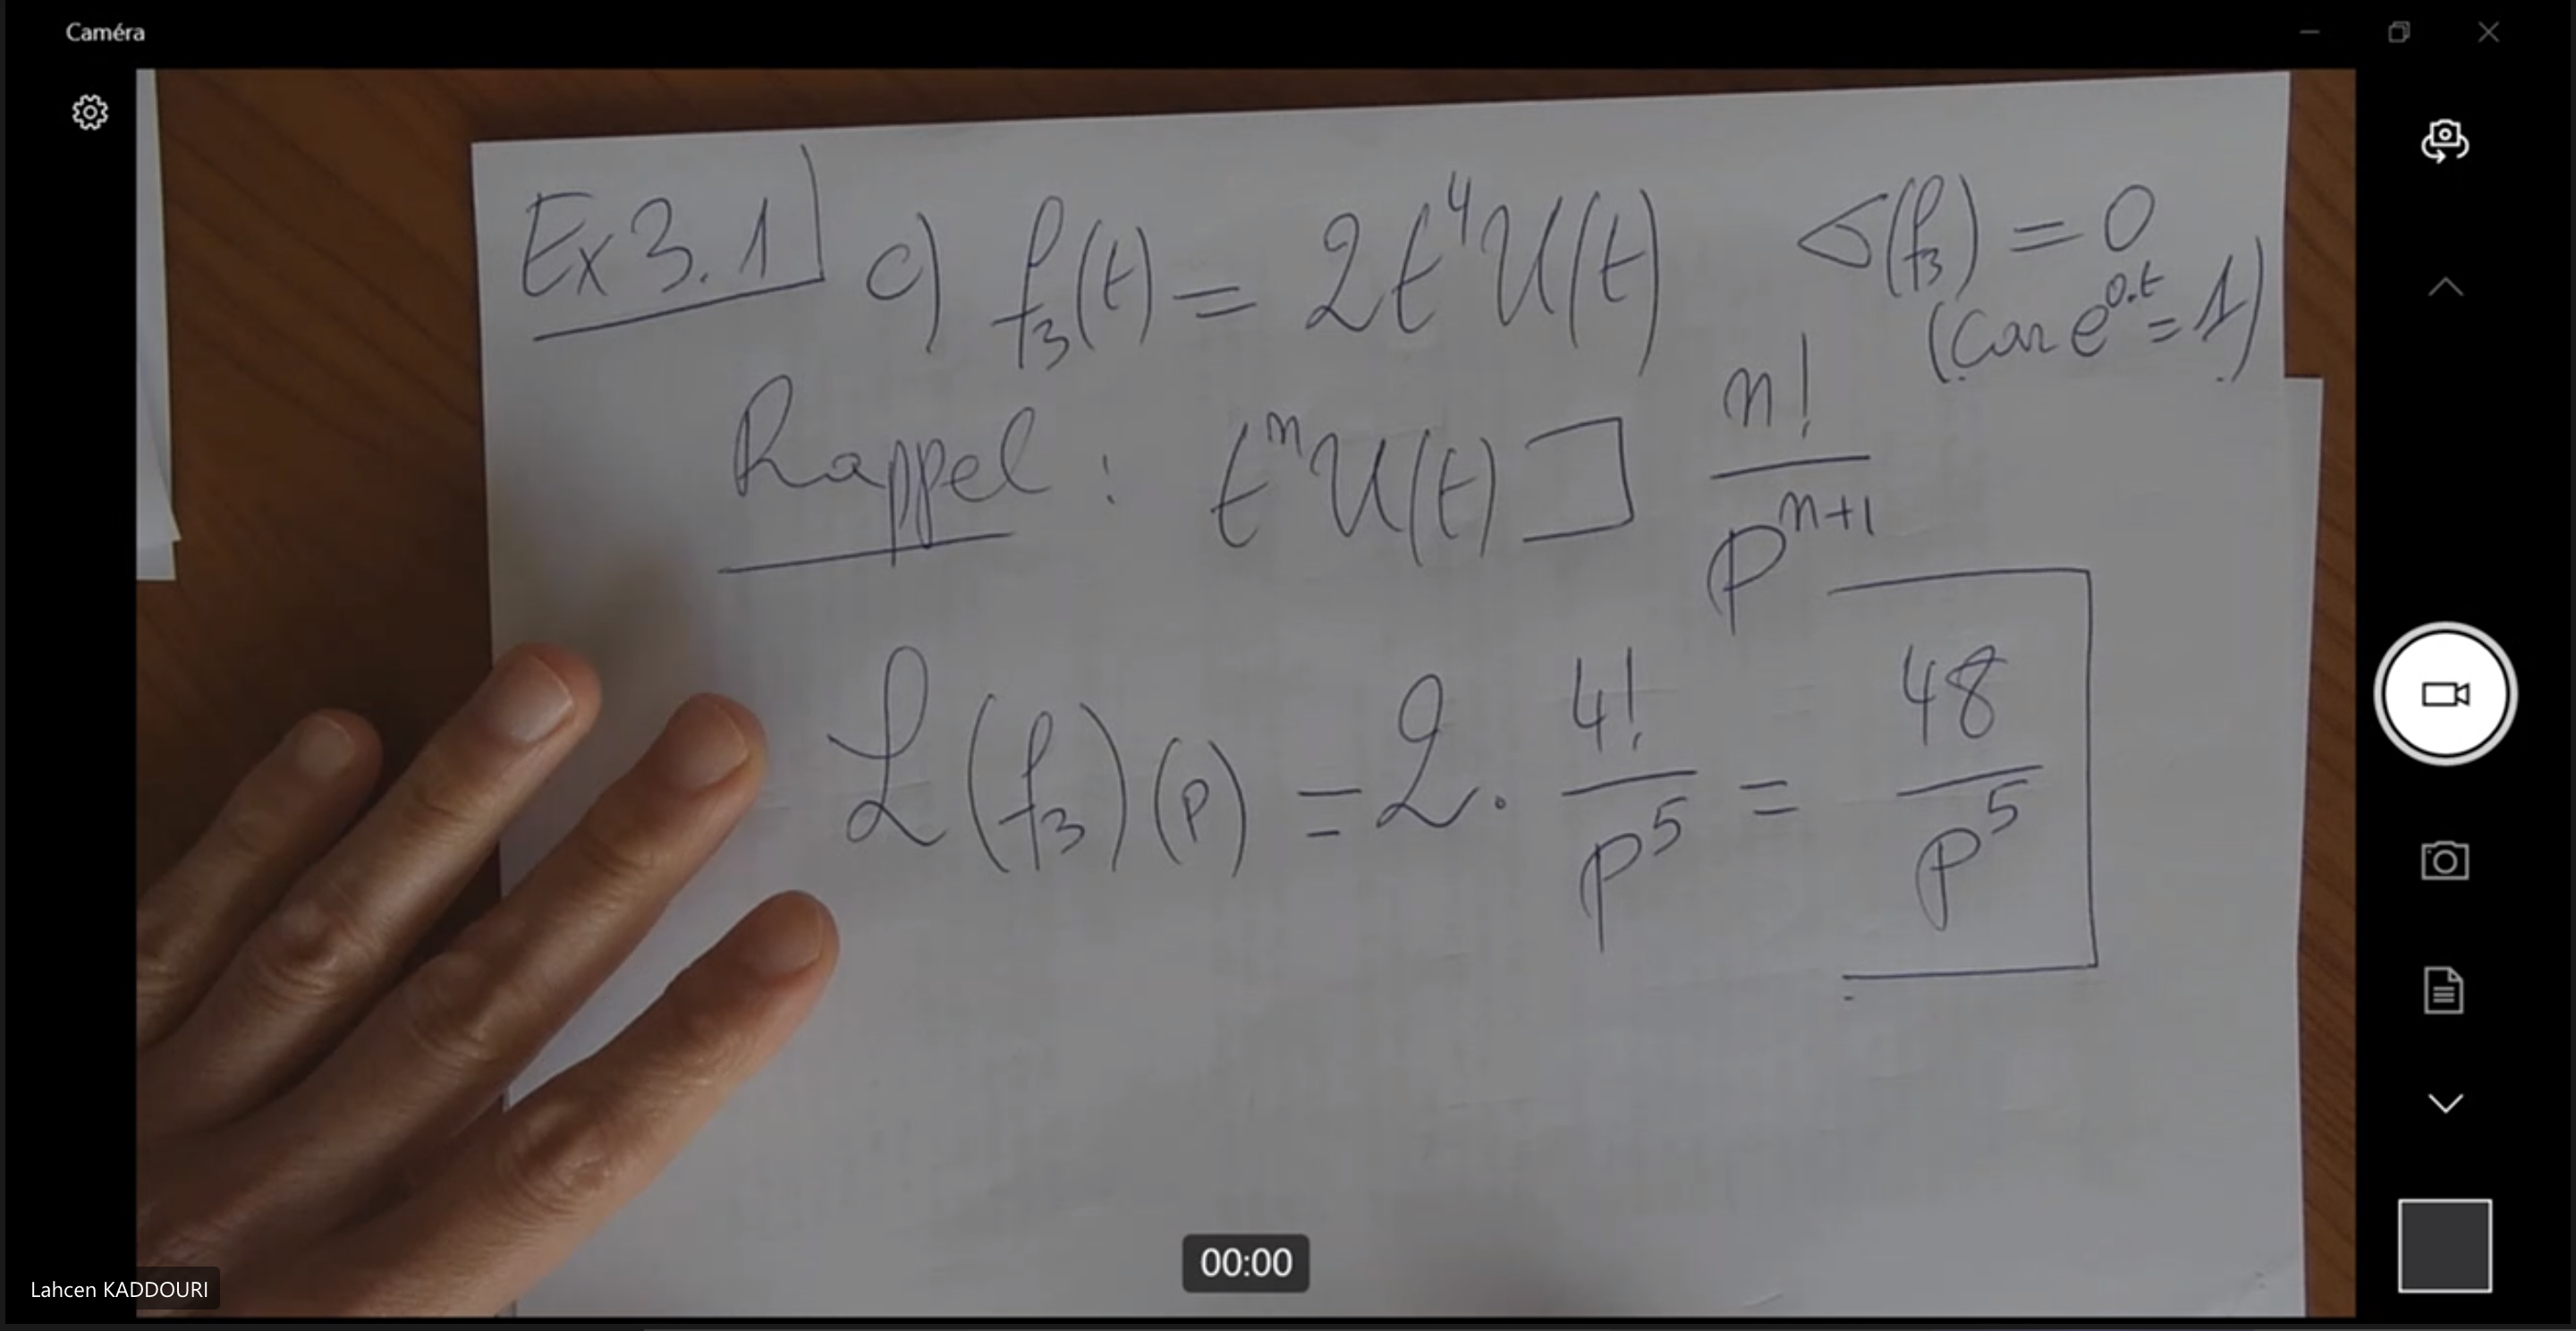 Caméra
Ex 3.1 c) f₃(t) = 2t⁴U(t) σ(f₃) = 0
(Car e⁰·ᵗ = 1)
Rappel : tⁿU(t) ⊐ n!/pⁿ⁺¹
ℒ(f₃)(p) = 2 · 4!/p⁵ = 48/p⁵
00:00
Lahcen KADDOURI